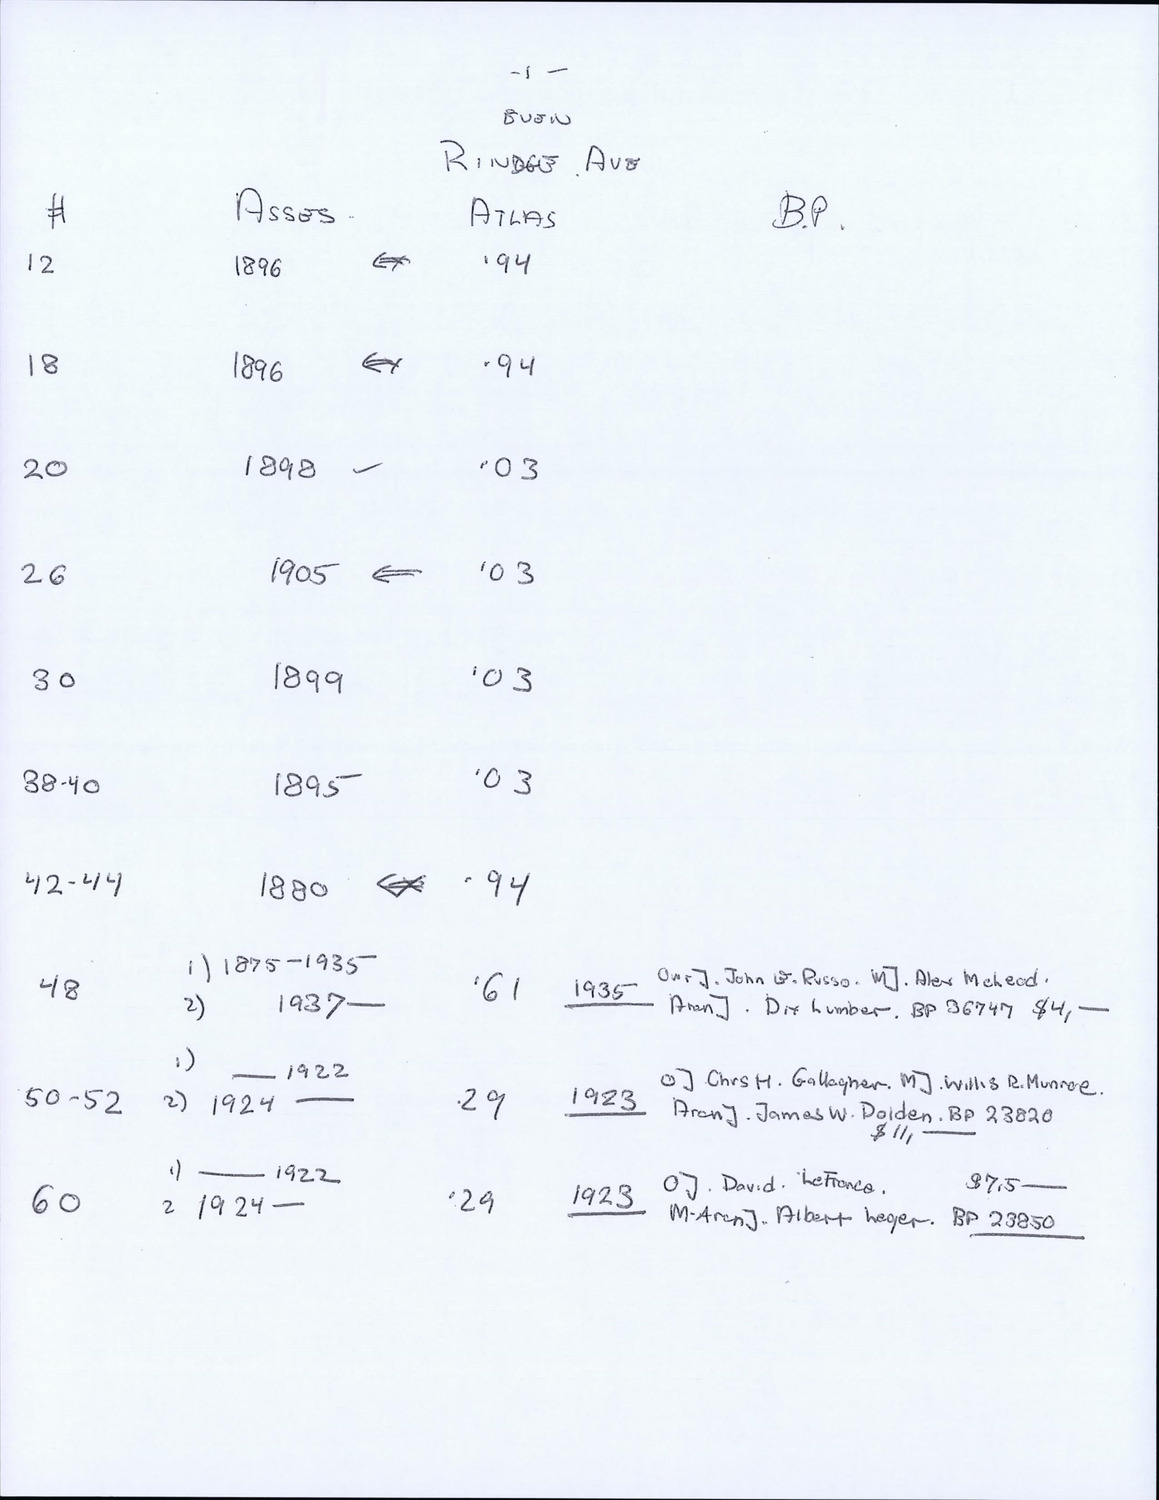 -1-
EVEN
RINDGE AVE
# ASSES. ATLAS B.P.
12 1896 '94
18 1896 '94
20 1898 ✓ '03
26 1905 ← '03
30 1899 '03
38-40 1895 '03
42-44 1880 '94
48 1) 1875-1935 '61 1935 Owr]. John . Russo. M]. Alex McLeod.
2) 1937— Aren]. Dix Lumber. BP 36747 $4,—
50-52 1) —1922 '29 1923 O] Chrs H. Gallagher. M]. Willis R. Munroe.
2) 1924— Aren]. James W. Dolden. BP 23820
$11,—
60 1) —1922 '29 1923 O]. David. LeFrance. $7,5—
2 1924— M-Aren]. Albert Leger. BP 23850